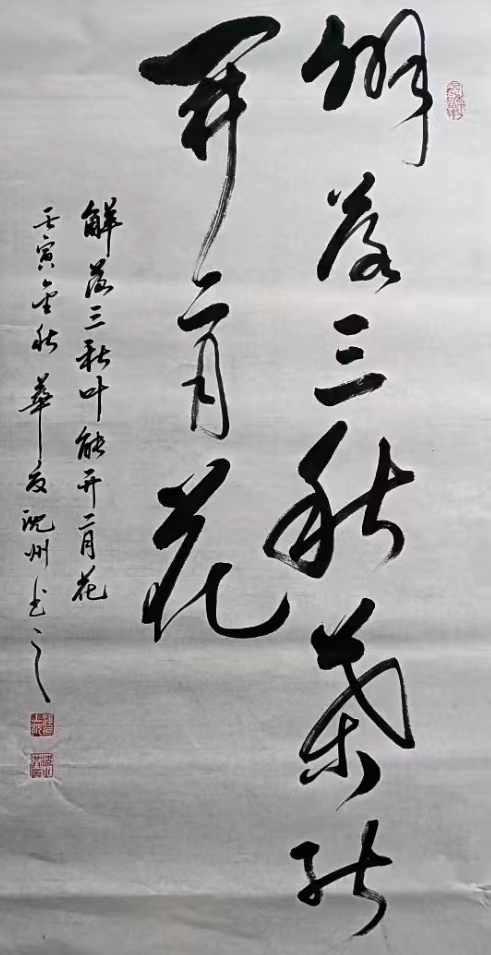 解落三秋葉能
开二月花
解落三秋叶能开二月花
壬寅金秋華友沈州书之